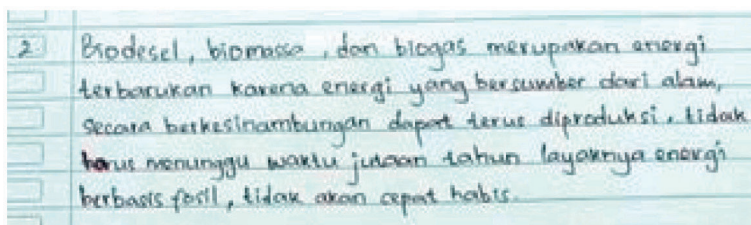 2 Biodesel, biomassa, dan biogas merupakan energi
terbarukan karena energi yang bersumber dari alam,
secara berkesinambungan dapat terus diproduksi, tidak
harus menunggu waktu jutaan tahun layaknya energi
berbasis fosil, tidak akan cepat habis.